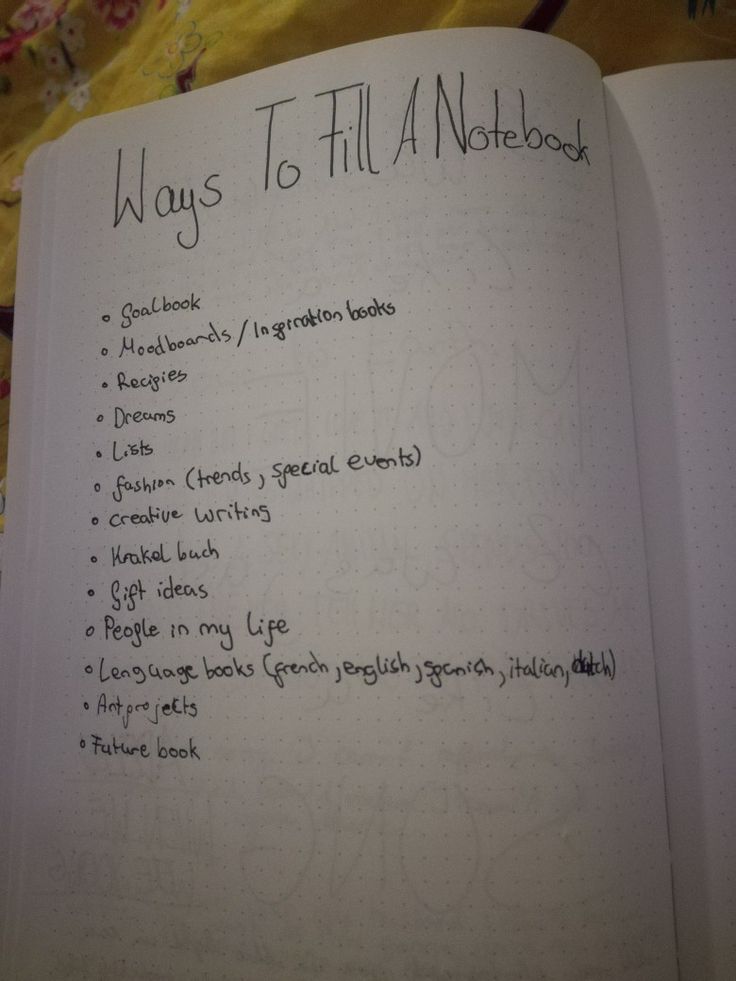 Ways To Fill A Notebook
• Goalbook
• Moodboards / Inspiration books
• Recipies
• Dreams
• Lists
• fashion (trends, special events)
• creative writing
• Krakel buch
• Gift ideas
• People in my life
• Lenguage books (french, english, spanish, italian, dutch)
• Artprojects
• Future book